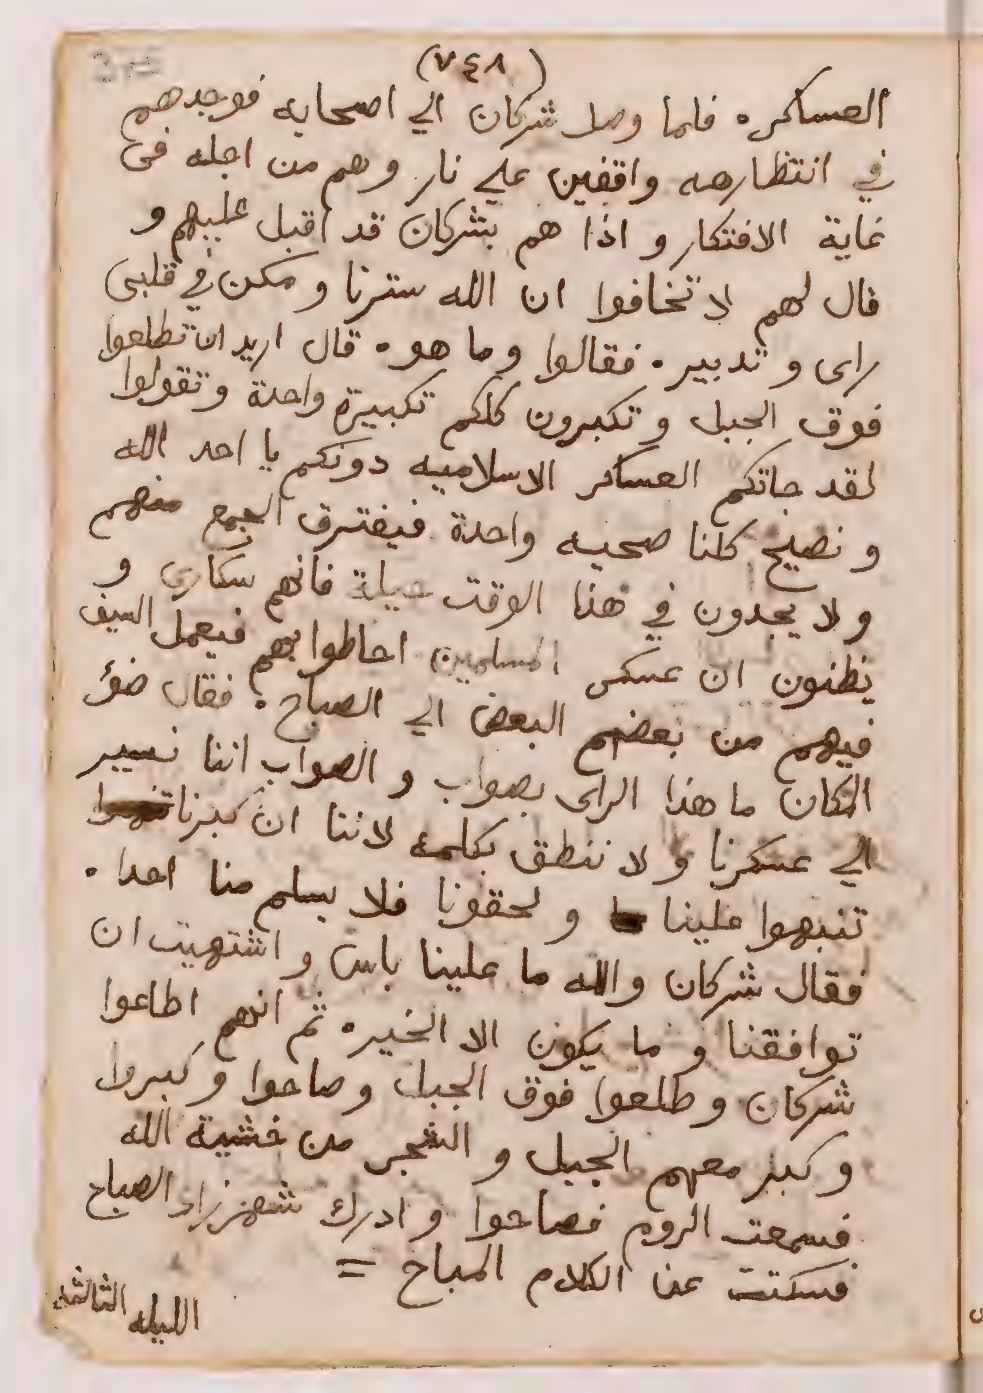 (٧٤٨)
العساكر. فلما وصل شركان الي اصحابه فوجدهم
في انتظارهه واقفين علي نار وهم من اجله في
غاية الافتكار و اذا هم بشركان قد اقبل عليهم و
قال لهم لا تخافوا ان الله سترنا و مكن في قلبي
راى و تدبير. فقالوا وما هو. قال اريد ان تطلعوا
فوق الجبل و تكبرون كلكم تكبيرة واحدة و تقولوا
لقد جاتكم العساكر الاسلاميه دونكم يا احد الله
و نصيح كلنا صحيه واحدة فيفترق الجمع منهم
و لا يجدون في هذا الوقت حيلة فانهم سكارى و
يظنون ان عسكر المسلمين احاطوا بهم فيعمل السيف
فيهم من بعضهم البعض الي الصباح. فقال ضوء
المكان ما هذا الراى بصواب و الصواب اننا نسير
الي عسكرنا و لا ننطق بكلمة لاننا ان كبرنا
تنبهوا علينا و لحقونا فلا يسلم منا احدا.
فقال شركان والله ما علينا باس و اشتهيت ان
توافقنا و ما يكون الا الخير. ثم انهم اطاعوا
شركان و طلعوا فوق الجبل و صاحوا و كبروا
و كبر معهم الجبل و الشجر من خشية الله
فسمعت الروم فصاحوا و ادرك شهرزاد الصباح
فسكتت عن الكلام المباح =
الليله الثالثه